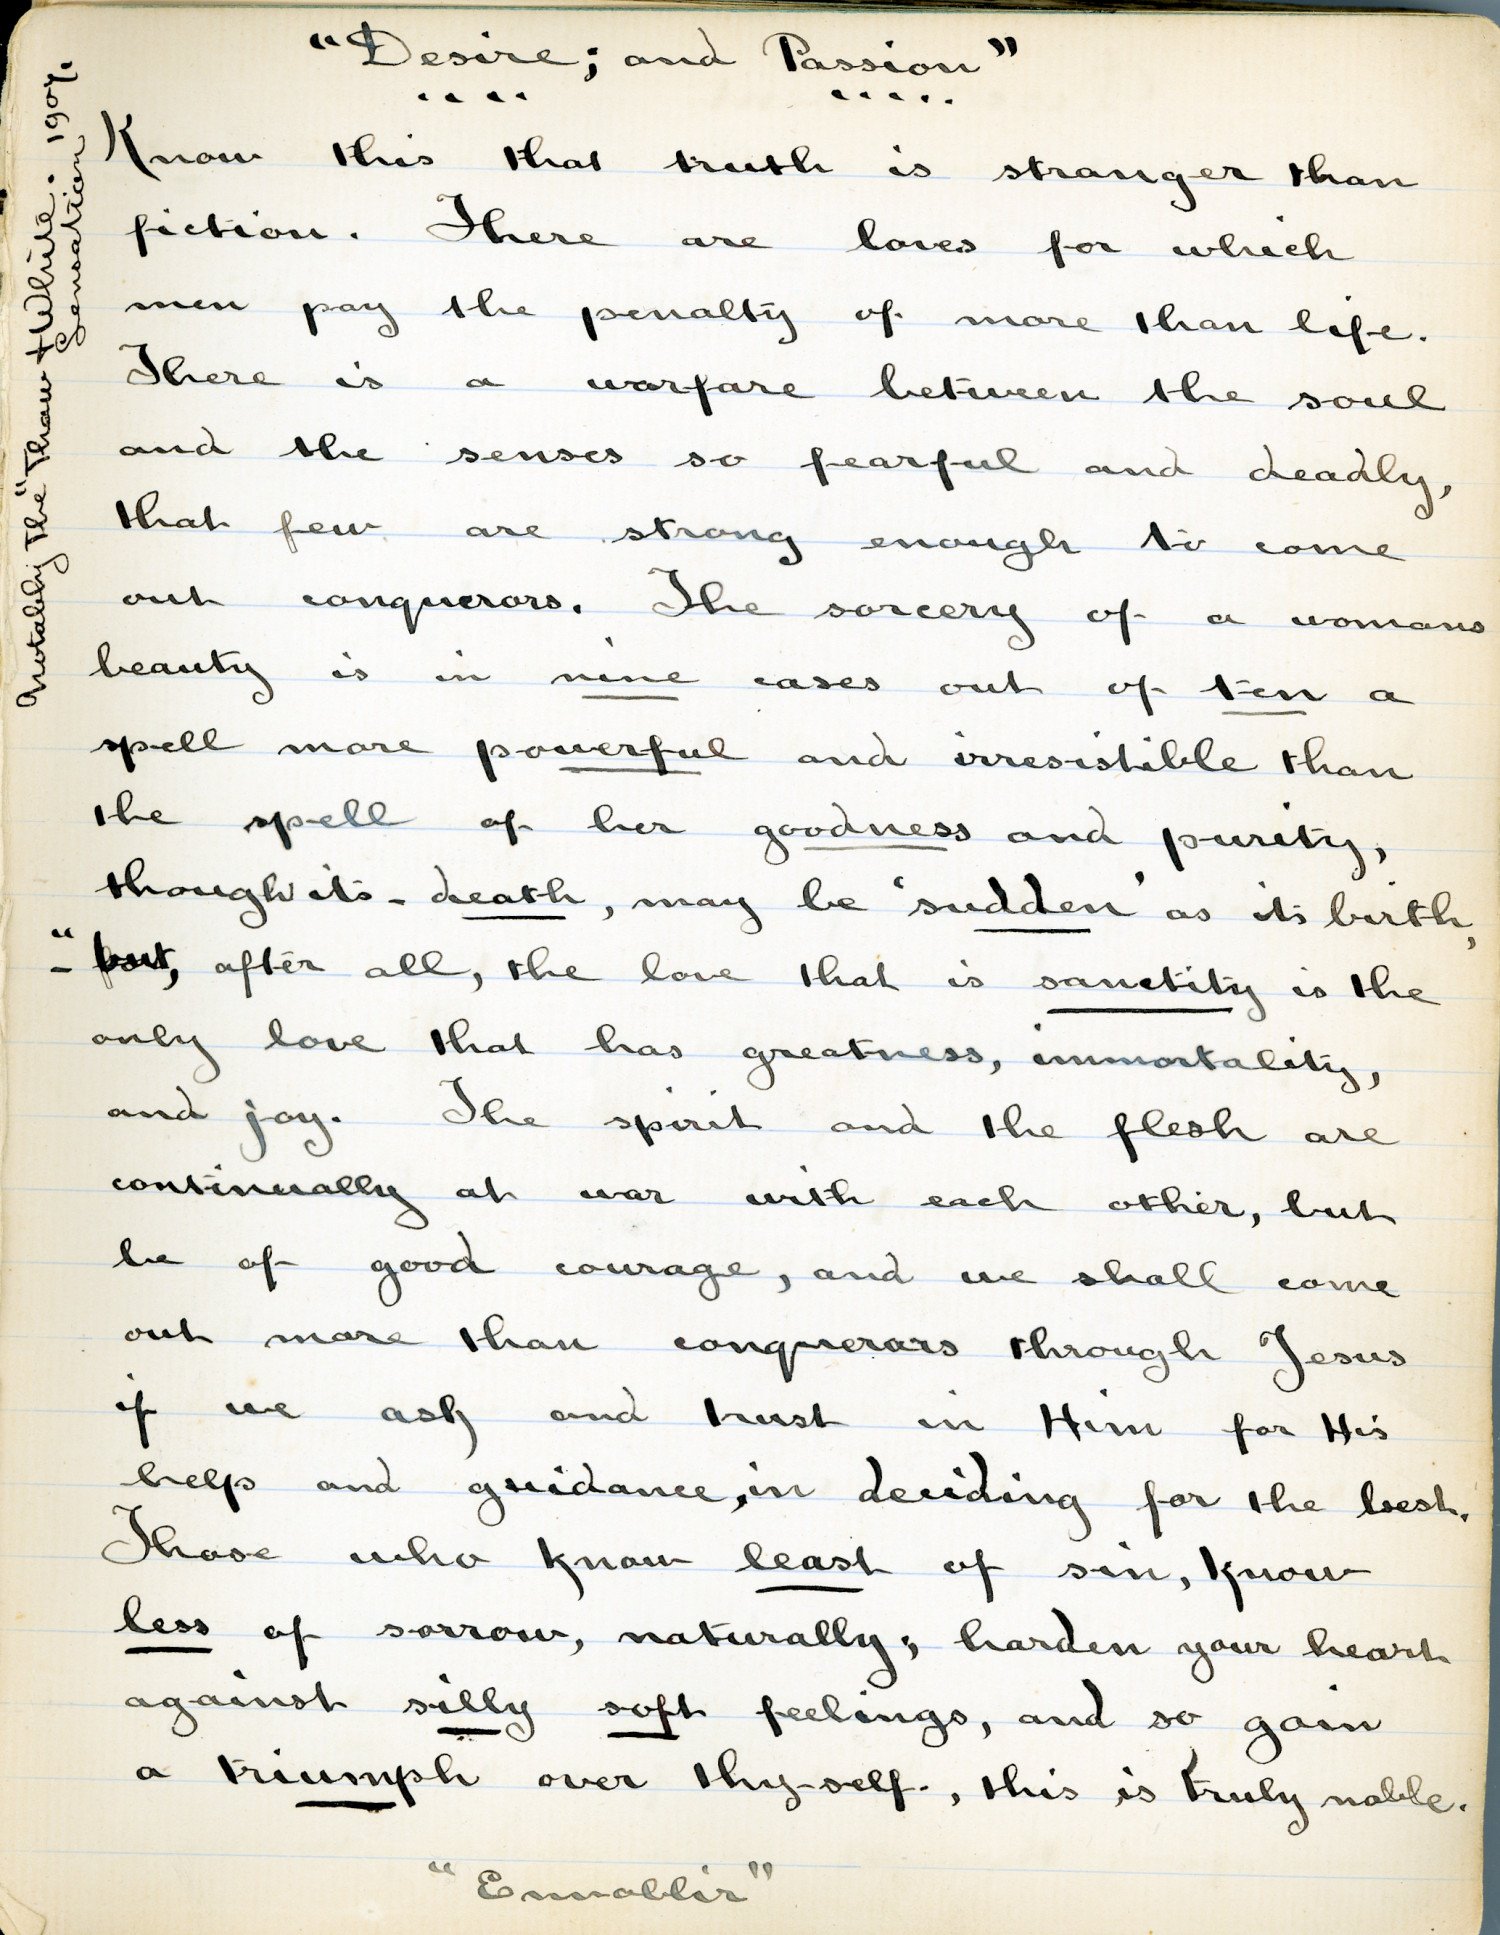 "Desire; and Passion"
Know this that truth is stranger than
fiction. There are loves for which
men pay the penalty of more than life.
There is a warfare between the soul
and the senses so fearful and deadly,
that few are strong enough to come
out conquerors. The sorcery of a womans
beauty is in nine cases out of ten a
spell more powerful and irresistible than
the spell of her goodness and purity,
though its - death, may be 'sudden' as its birth,
"- but, after all, the love that is sanctity is the
only love that has greatness, immortality,
and joy. The spirit and the flesh are
continually at war with each other, but
be of good courage, and we shall come
out more than conquerors through Jesus
if we ask and trust in Him for His
help and guidance, in deciding for the best.
Those who know least of sin, know
less of sorrow, naturally; harden your heart
against silly soft feelings, and so gain
a triumph over thy-self., this is truly noble.
"Ennoblir"
Notably The "Thaw + White. 1907.
Sensation